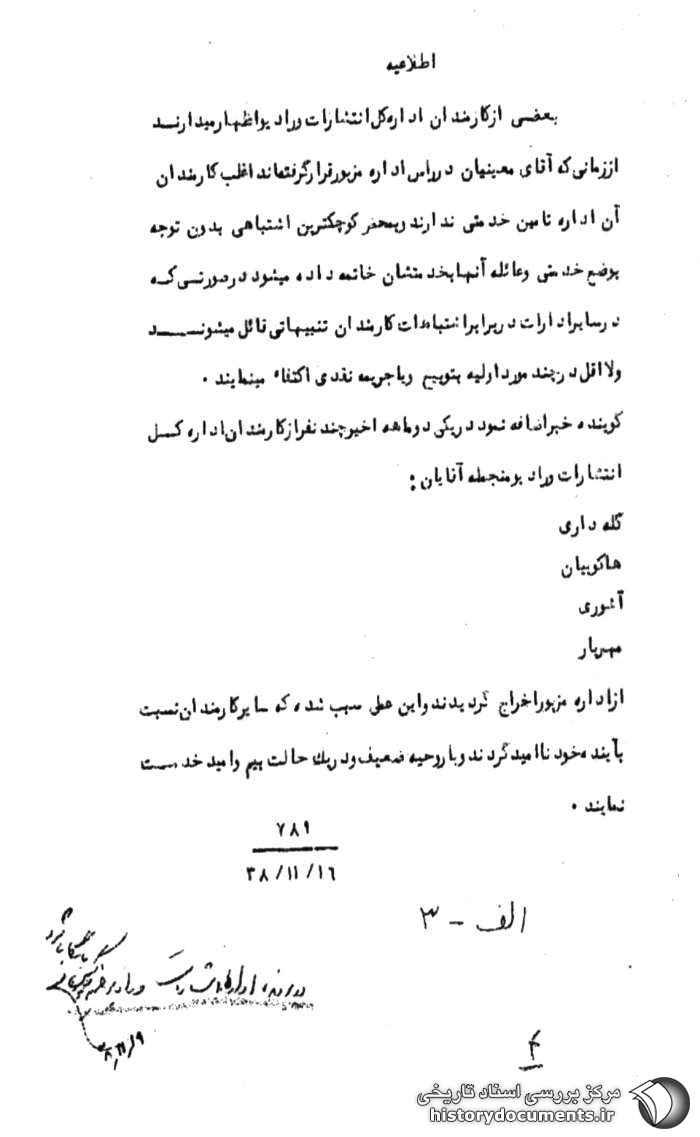 اطلاعیه
بعضی از کارمندان اداره کل انتشارات و رادیو اظهار میدارند
از زمانی که آقای معینیان در راس اداره مزبور قرار گرفته‌اند اغلب کارمندان
آن اداره تامین خدمتی ندارند و بمحض کوچکترین اشتباهی بدون توجه
بوضع خدمتی و عائله آنها بخدمتشان خاتمه داده میشود در صورتی که
در سایر ادارات در برابر اشتباهات کارمندان تنبیهاتی قائل میشونـــد
ولا اقل در چند مورد اولیه بتوبیخ و یا جریمه نقدی اکتفاء مینمایند .
گوینده خبر اضافه نمود در یکی دو ماهه اخیر چند نفر از کارمندان اداره کـل
انتشارات و رادیو منجمله آقایان :
گله داری
هاکوپیان
آشوری
مهریار
از اداره مزبور اخراج گردیدند و این عمل سبب شده که سایر کارمندان نسبت
بآینده خود ناامید گردند و با روحیه ضعیف و در یک حالت بیم و امید خدمت
نمایند .
۷۸۹
۳۸/۱۱/۱۶
الف - ۳
در پرونده اداره انتشارات و رادیو
بایگانی شود
۴
مرکز بررسی اسناد تاریخی
historydocuments.ir